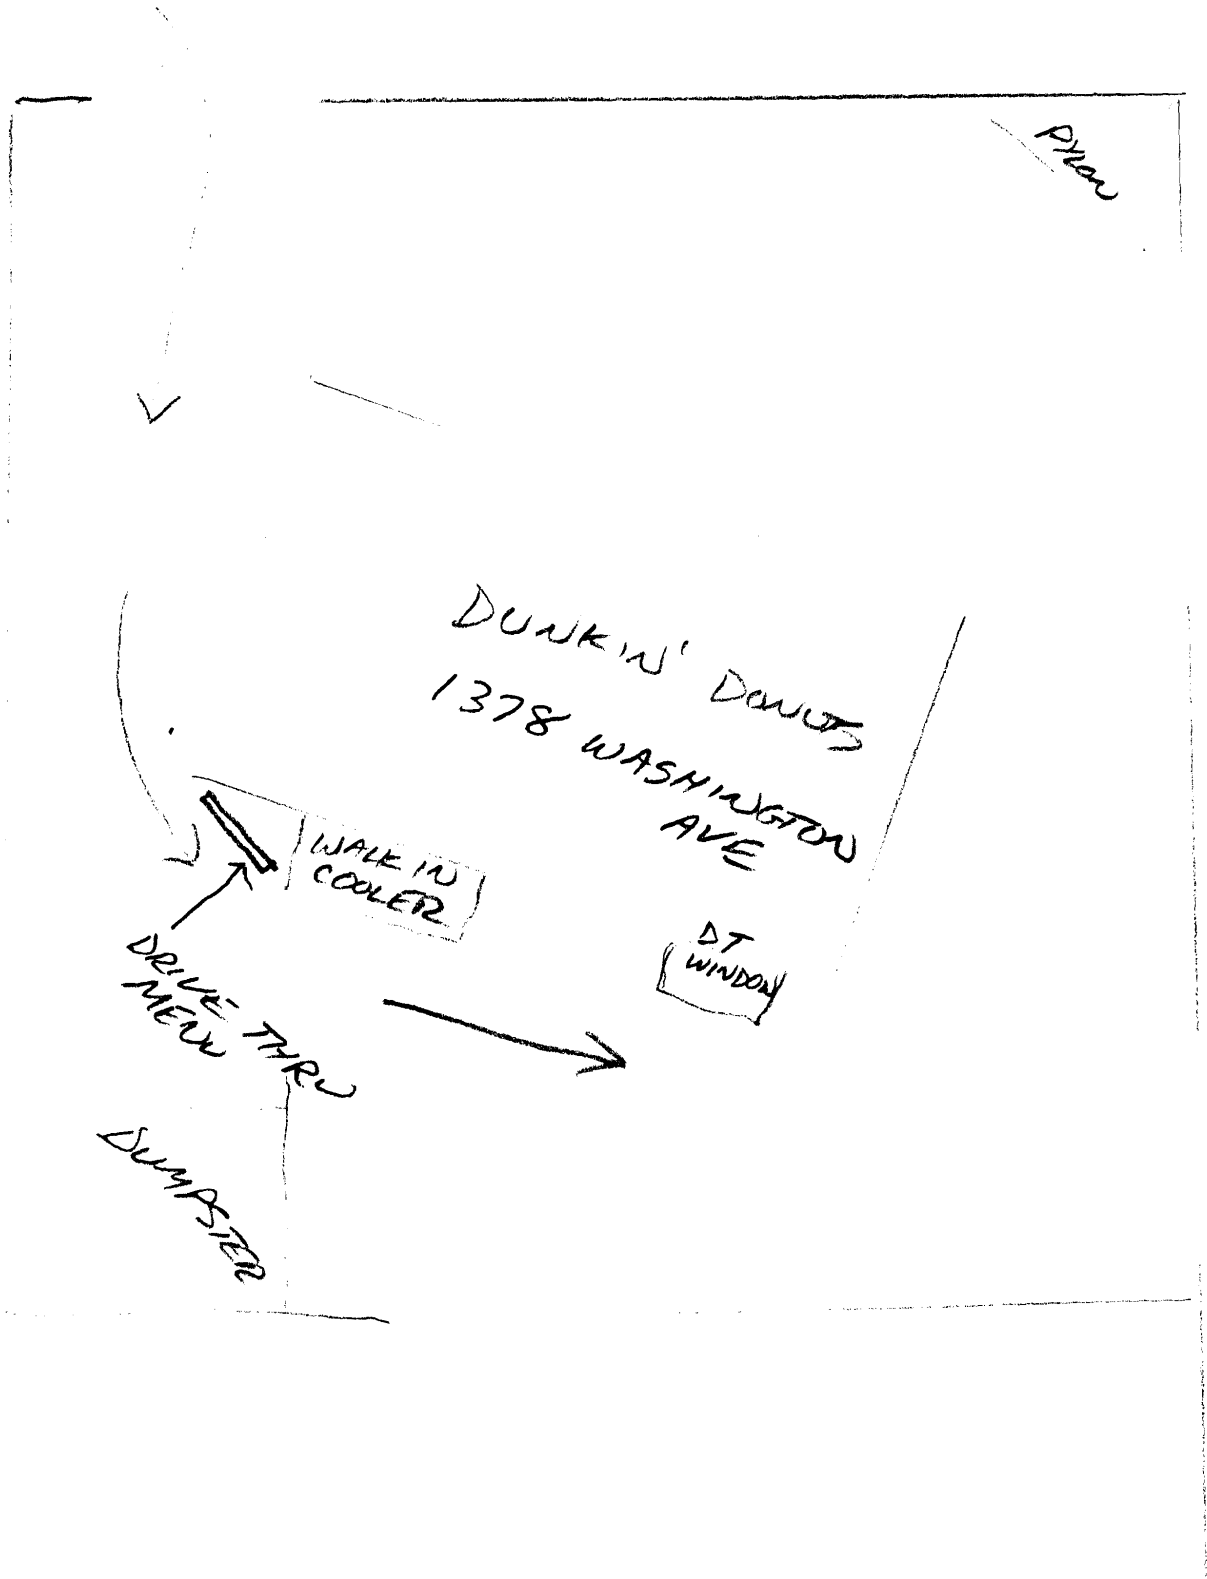 PYLON
DUNKIN' DONUTS
1378 WASHINGTON
AVE
WALK IN
COOLER
DT
WINDOW
DRIVE THRU
MENU
DUMPSTER